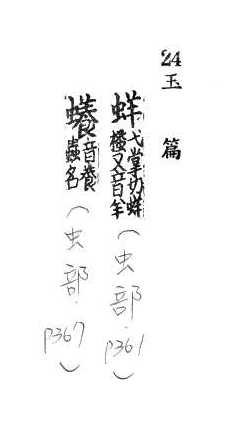 24
玉篇
蛘弋掌切蛘𧎸又音羊(虫部.P361)
蟻音養蟲名(虫部.P367)